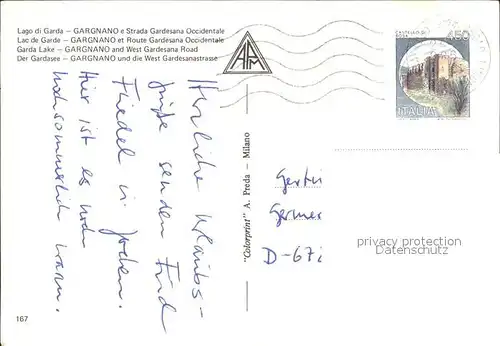 Lago di Garda – GARGNANO e Strada Gardesana Occidentale
Lac de Garda – GARGNANO et Route Gardesana Occidentale
Garda Lake – GARGNANO and West Gardesana Road
Der Gardasee – GARGNANO und die West Gardesanastrasse
APM
CASTELLO DI
450
ITALIA
Herzliche Urlaubs-
grüße senden Euch
Friedel u. Jochen.
Hier ist es noch
hochsommerlich warm.
"Colorprint" A. Preda – Milano
Germer
D-67
privacy protection
Datenschutz
167